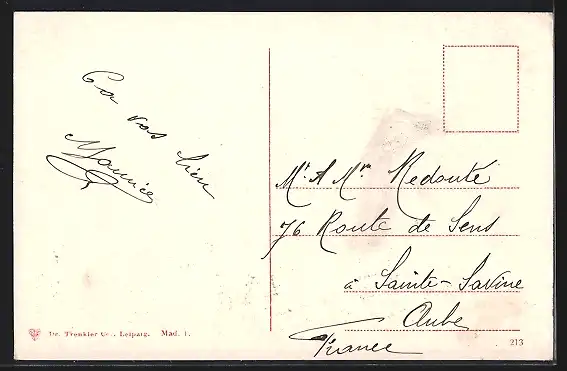 Ça va bien
Maurice
Mr & Mme Redouté
76 Route de Sens
à Sainte-Savine
Aube
France
Dr. Trenkler Co., Leipzig. Mad. 1.
213